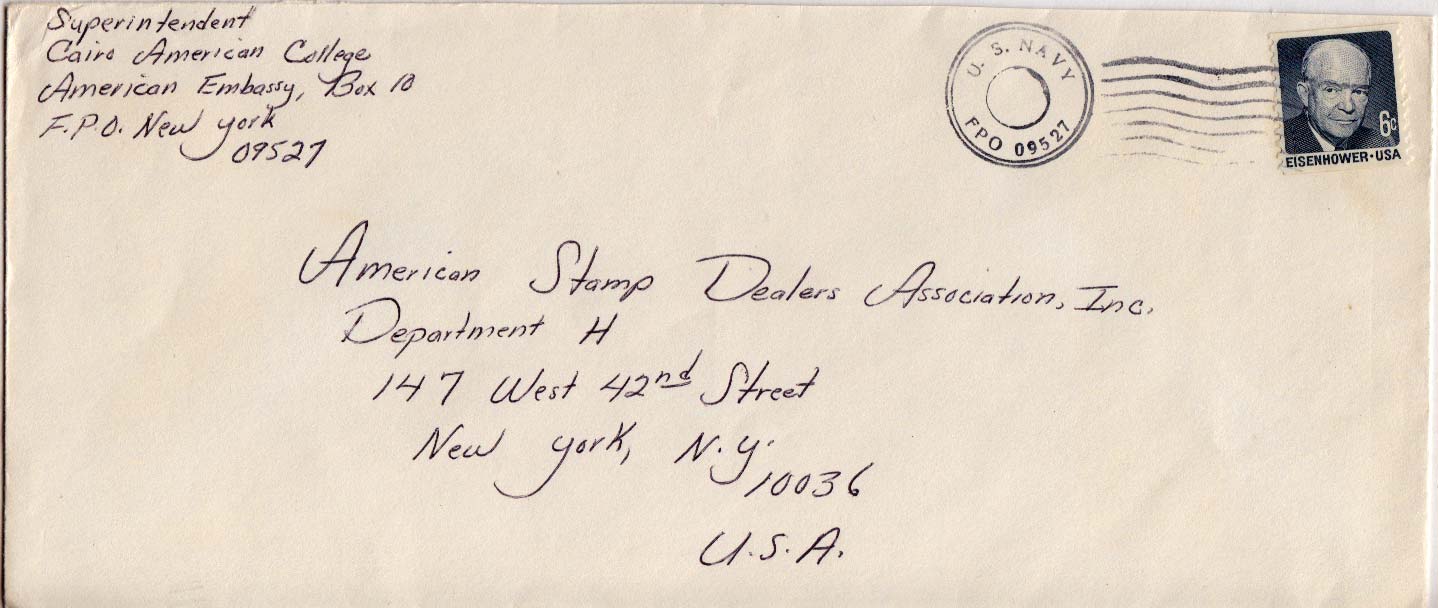 Superintendent
Cairo American College
American Embassy, Box 10
F.P.O. New York
09527
U. S. NAVY
FPO 09527
6c
EISENHOWER·USA
American Stamp Dealers Association, Inc.
Department H
147 West 42nd Street
New York, N.Y.
10036
U.S.A.